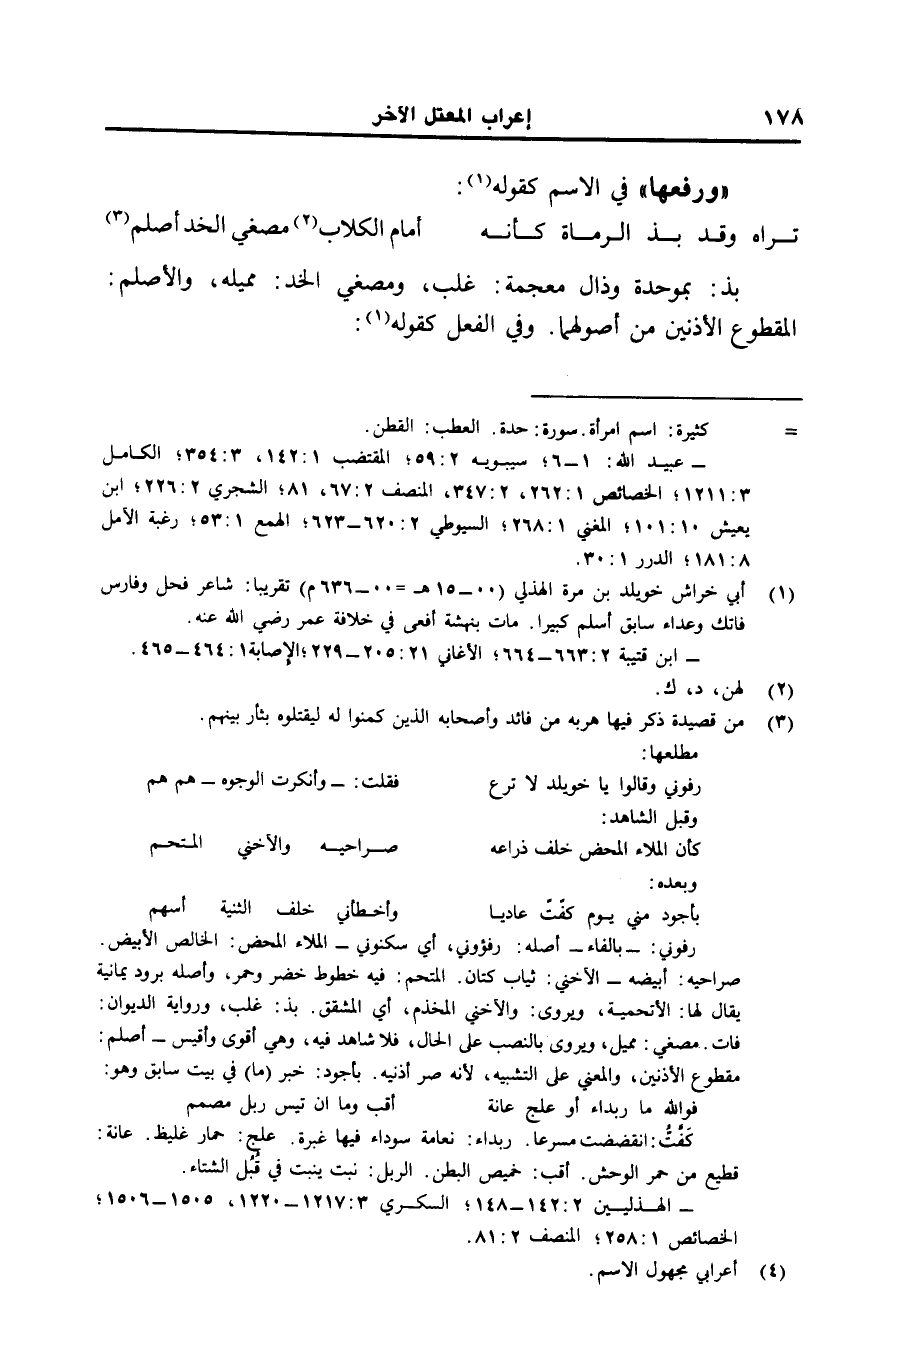 ١٧٨ إعراب المعتل الآخر
«ورفعها» في الاسم كقوله(١):
تـراه وقـد بـذ الـرمـاة كـأنـه أمام الكلاب(٢) مصغي الخد أصلم(٣)
بذ: بموحدة وذال معجمة: غلب، ومصغي الخد: مميله، والأصلم:
المقطوع الأذنين من أصولهما. وفي الفعل كقوله(١):
= كثيرة: اسم امرأة. سورة: حدة. العطب: القطن.
ــ عبيـد الله: ١ــ٦؛ سيبويه ٢: ٥٩؛ المقتضب ١: ١٤٢، ٣: ٣٥٤؛ الكامل
٣: ١٢١١؛ الخصائص ١: ٢٦٢، ٢: ٣٤٧، المنصف ٢: ٦٧، ٨١؛ الشجري ٢: ٢٢٦؛ ابن
يعيش ١٠: ١٠١؛ المغني ١: ٢٦٨؛ السيوطي ٢: ٦٢٠ــ٦٢٣؛ الهمع ١: ٥٣؛ رغبة الأمل
٨: ١٨١؛ الدرر ١: ٣٠.
(١) أبي خراش خويلد بن مرة الهذلي (٠٠ــ١٥ هـ =٠٠ــ٦٣٦ م) تقريبا: شاعر فحل وفارس
فاتك وعداء سابق أسلم كبيرا. مات بنهشة أفعى في خلافة عمر رضي الله عنه.
ــ ابن قتيبة ٢: ٦٦٣ــ٦٦٤؛ الأغاني ٢١: ٢٠٥ــ٢٢٩؛الإصابة١: ٤٦٤ــ٤٦٥.
(٢) لهن، د، ك.
(٣) من قصيدة ذكر فيها هربه من فائد وأصحابه الذين كمنوا له ليقتلوه بثأر بينهم.
مطلعها:
رفوني وقالوا يا خويلد لا ترع فقلت: ــ وأنكرت الوجوه ــ هم هم
وقبل الشاهد:
كأن الملاء المحض خلف ذراعه صـراحيـه والآخني المتحـم
وبعده:
بأجود مني يـوم كفّتّ عاديـا وأخـطأني خلف الثنية أسهم
رفوني: ــ بالفاء ــ أصله: رفؤوني، أي سكنوني ــ الملاء المحض: الخالص الأبيض.
صراحيه: أبيضه ــ الآخني: ثياب كتان. المتحم: فيه خطوط خضر وحمر، وأصله برود يمانية
يقال لها: الأتحمية، ويروى: والآخني المخذم، أي المشقق. بذ: غلب، ورواية الديوان:
فات. مصغي: مميل، ويروى بالنصب على الحال، فلا شاهد فيه، وهي أقوى وأقيس ــ أصلم:
مقطوع الأذنين، والمعني على التشبيه، لأنه صر أذنيه. بأجود: خبر (ما) في بيت سابق وهو:
فوالله ما ربداء أو علج عانة أقب وما ان تيس ربل مصمم
كَفَّتُّ: انقضضت مسرعا. ربداء: نعامة سوداء فيها غبرة. علج: حمار غليظ. عانة:
قطيع من حمر الوحش. أقب: خميص البطن. الربل: نبت ينبت في قُبُل الشتاء.
ــ الهـذليـين ٢: ١٤٢ــ١٤٨؛ السكـري ٣: ١٢١٧ــ١٢٢٠، ١٥٠٥ــ١٥٠٦؛
الخصائص ١: ٢٥٨؛ المنصف ٢: ٨١.
(٤) أعرابي مجهول الاسم.